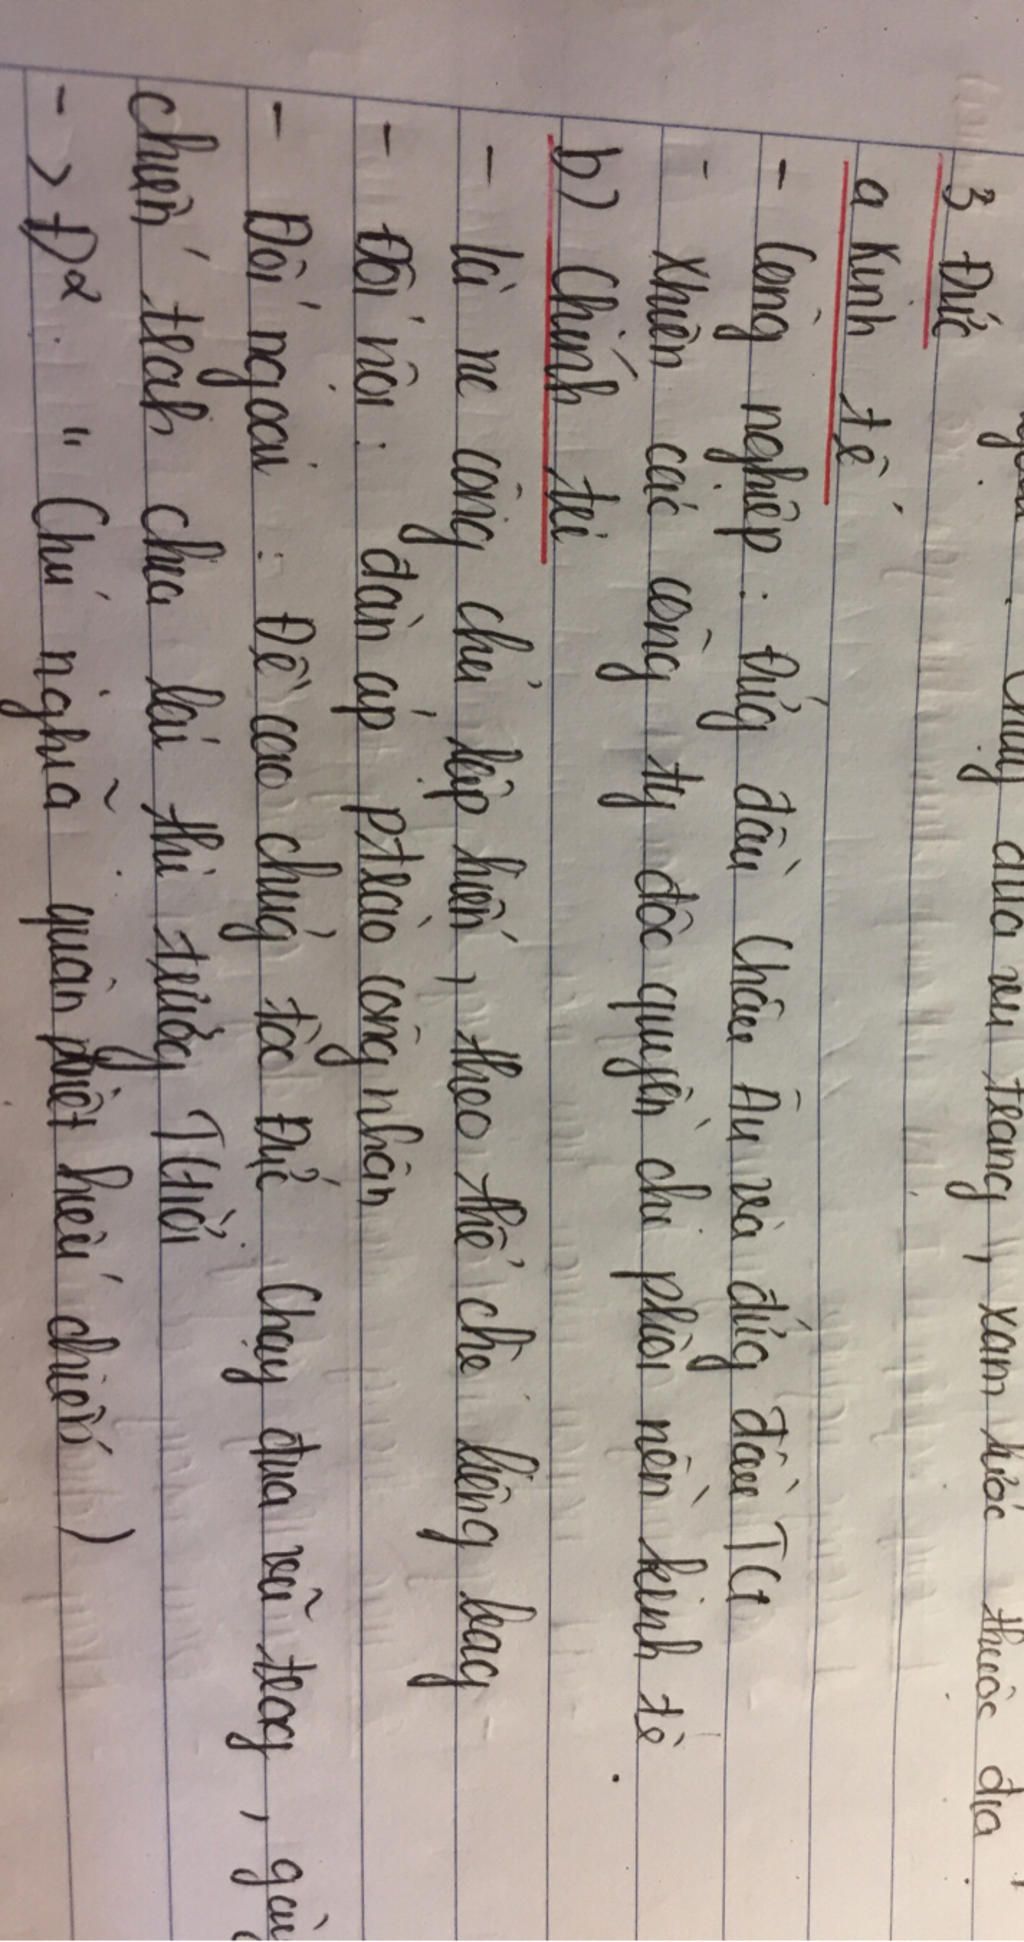 chạy đua vũ trang, xâm lược thuộc địa.
3 Đức
a Kinh tế
- Công nghiệp : Đứg đầu Châu Âu và đứg đầu TG
- Xhiện các công ty độc quyền chi phối nền kinh tế.
b) Chính trị
- là nc công chủ lập hiến, theo thể chế liêng bag
- Đối nội : đàn áp ptrào công nhân
- Đối ngoại : Đề cao chủg tộc Đức Chạy đua vũ trag, gây
chiến trah chia lại thị trườg TGiới
-> Đ2 : " Chủ nghĩa quân phiệt hiếu chiến )